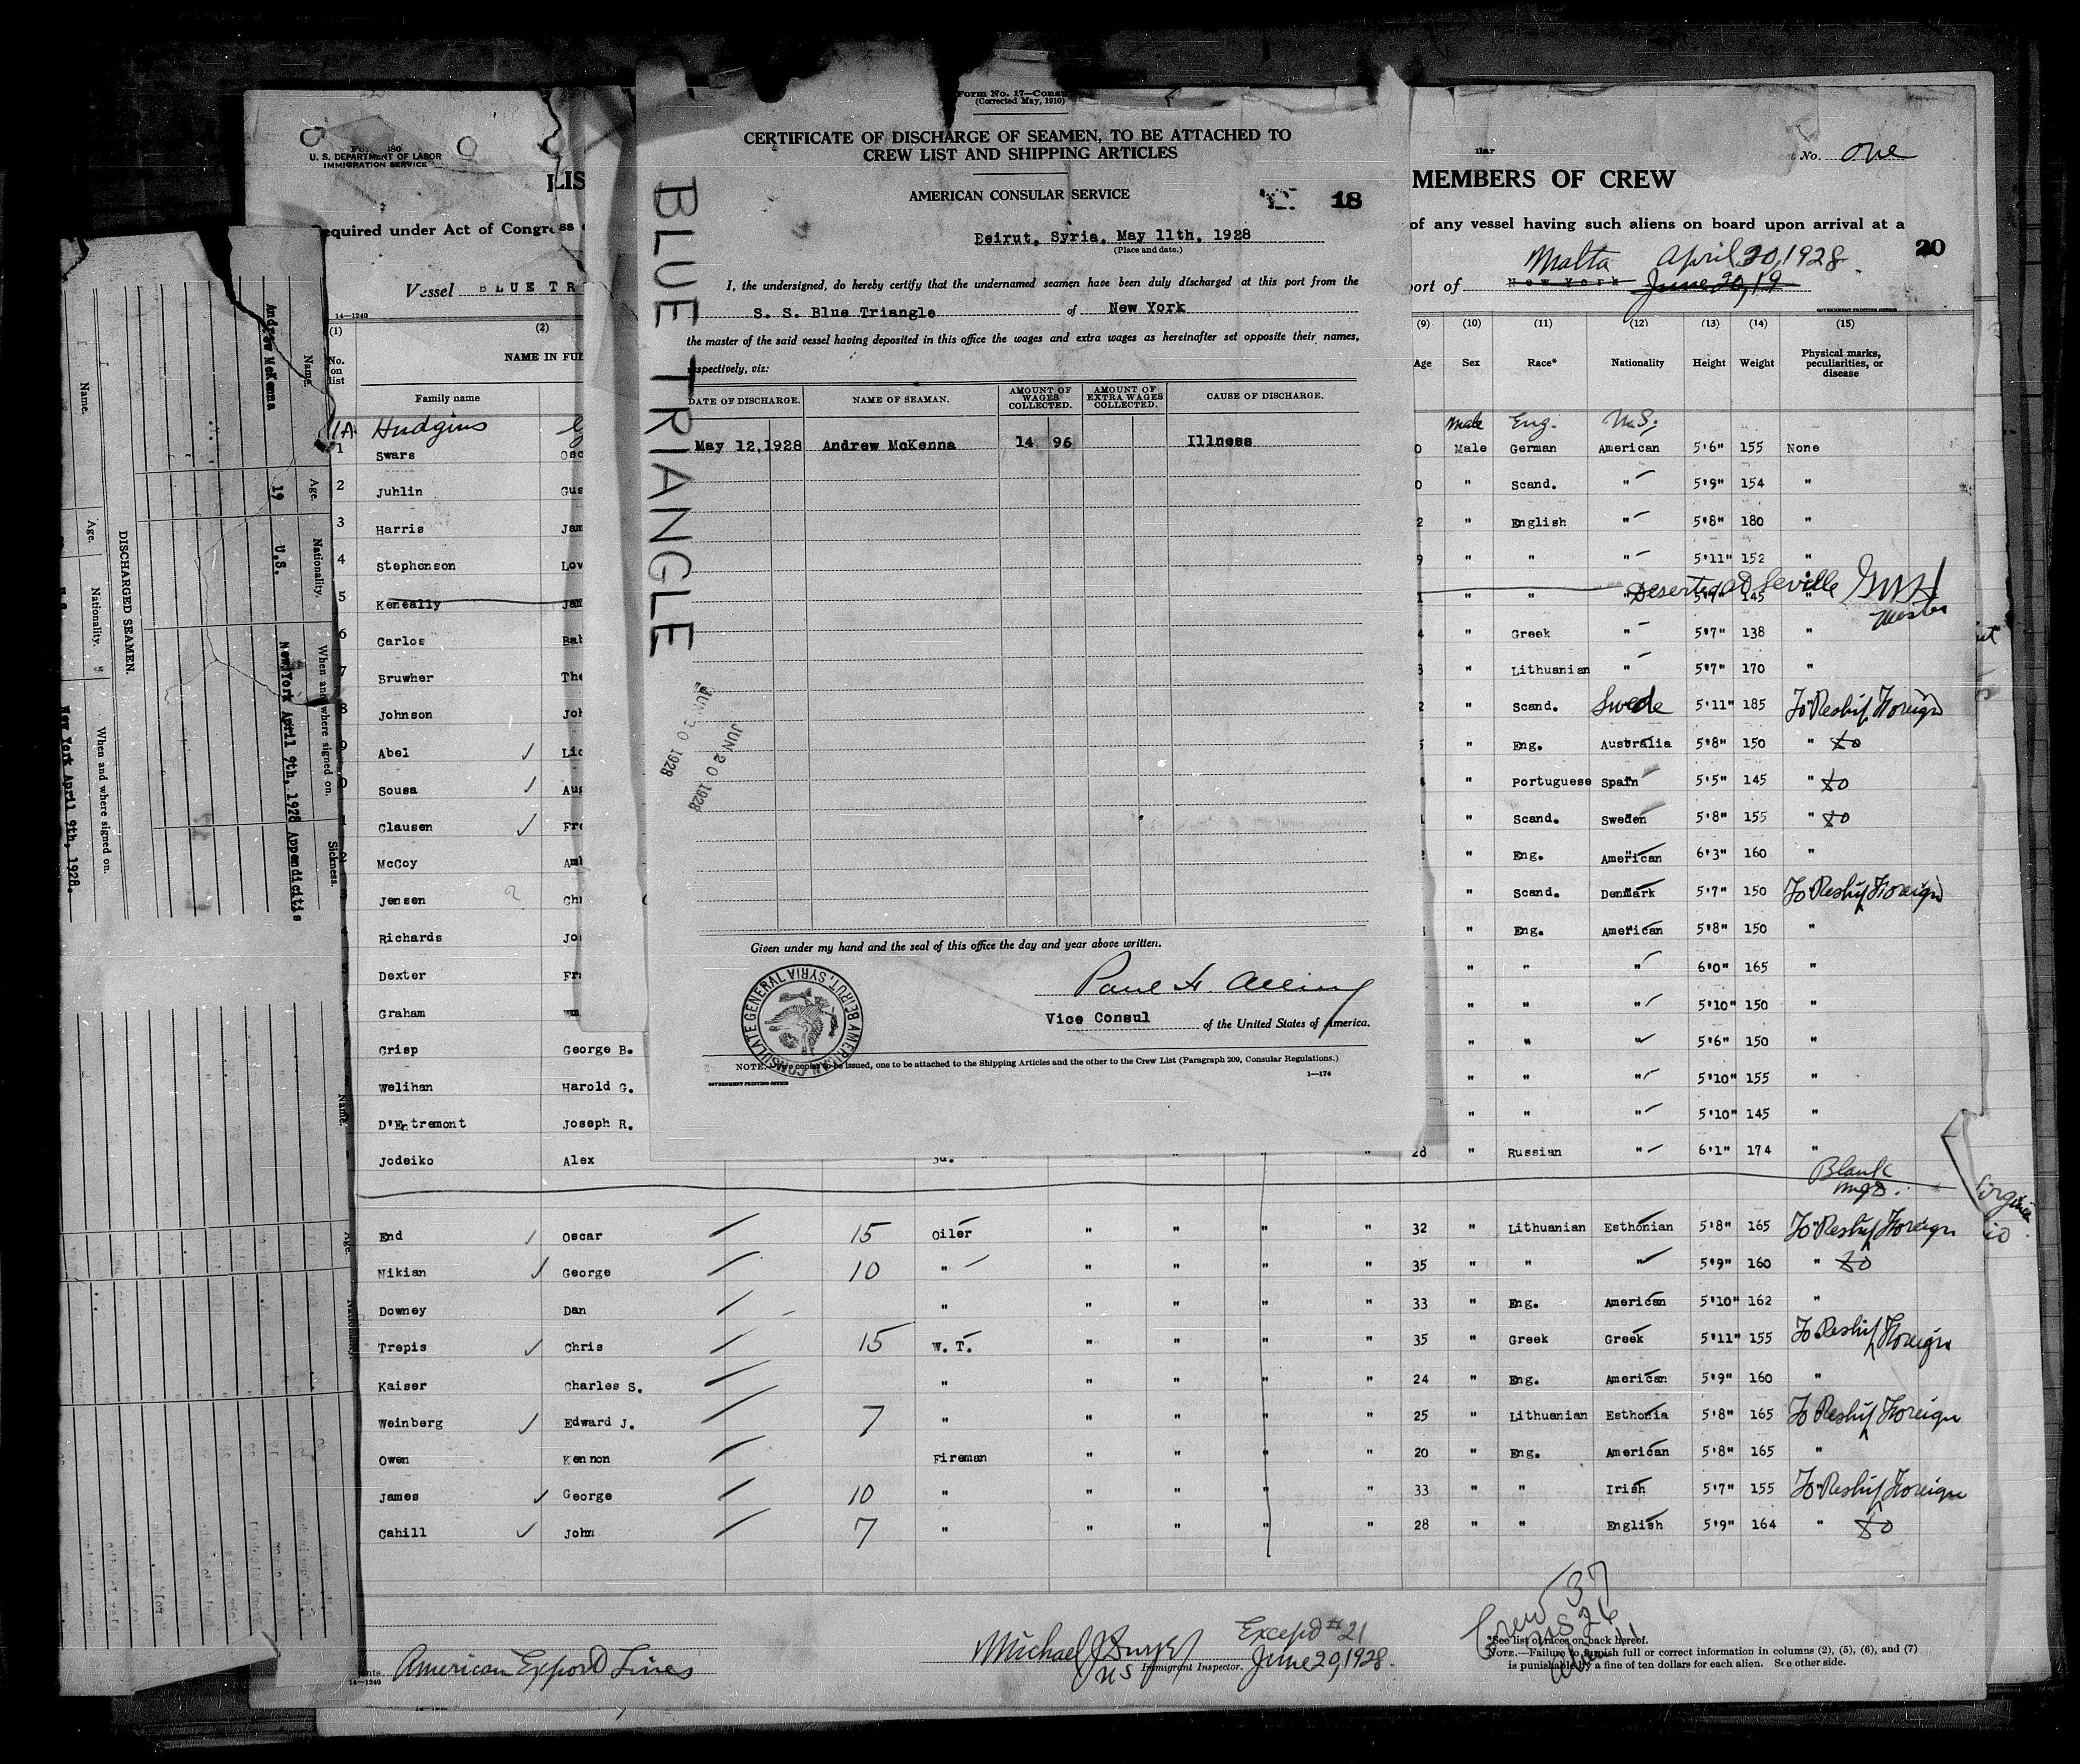 Form No. 17—Consu
(Corrected May, 1910)
CERTIFICATE OF DISCHARGE OF SEAMEN, TO BE ATTACHED TO
CREW LIST AND SHIPPING ARTICLES
AMERICAN CONSULAR SERVICE
18
Beirut, Syria, May 11th, 1928
(Place and date.)
I, the undersigned, do hereby certify that the undernamed seamen have been duly discharged at this port from the
S. S. Blue Triangle of New York
the master of the said vessel having deposited in this office the wages and extra wages as hereinafter set opposite their names,
respectively, viz:
DATE OF DISCHARGE. NAME OF SEAMAN. AMOUNT OF WAGES COLLECTED. AMOUNT OF EXTRA WAGES COLLECTED. CAUSE OF DISCHARGE.
May 12, 1928 Andrew McKenna 14 96 Illness
BLUE TRIANGLE
JUN 20 1928
JUN 20 1928
Given under my hand and the seal of this office the day and year above written.
Paul H. Alling
Vice Consul of the United States of America.
AMERICAN CONSULATE GENERAL BEIRUT, SYRIA
copies to be issued, one to be attached to the Shipping Articles and the other to the Crew List (Paragraph 209, Consular Regulations.)
GOVERNMENT PRINTING OFFICE 1—174
U. S. DEPARTMENT OF LABOR
IMMIGRATION SERVICE
No. One
LIS MEMBERS OF CREW
Required under Act of Congress of any vessel having such aliens on board upon arrival at a
20
Vessel BLUE TR port of New York June 20, 19 Malta April 20, 1928
14—1240 GOVERNMENT PRINTING OFFICE
(1) (2) (9) (10) (11) (12) (13) (14) (15)
No. on list NAME IN FUL Age Sex Race* Nationality Height Weight Physical marks, peculiarities, or disease
Family name
1A Hudgins Male Eng. U.S.
1 Swars Osc 0 Male German American 5'6" 155 None
2 Juhlin Gus 0 " Scand. " 5'9" 154 "
3 Harris Jam 2 " English " 5'8" 180 "
4 Stephenson Lov 9 " " " 5'11" 152 "
5 Keneally Jam 1 " " " 145 " Deserted at Seville
Master
6 Carlos Bab 4 " Greek " 5'7" 138 "
7 Bruwher The 3 " Lithuanian " 5'7" 170 "
8 Johnson Joh 2 " Scand. Swede 5'11" 185 To Reship Foreign
9 Abel Lio 5 " Eng. Australia 5'8" 150 " do
0 Sousa Aug " Portuguese Spain 5'5" 145 " do
1 Clausen Fre " Scand. Sweden 5'8" 155 " do
McCoy Amb " Eng. American 6'3" 160 "
Jensen Chr " Scand. Denmark 5'7" 150 To Reship Foreign
Richards Jo " Eng. American 5'8" 150 "
Dexter Fr " " " 6'0" 165 "
Graham Wm " " " 5'10" 150 "
Crisp George B. " " " 5'6" 150 "
Welihan Harold G. " " " 5'10" 155 "
D'Entremont Joseph R. " " " 5'10" 145 "
Jodeiko Alex 28 " Russian " 6'1" 174 "
Blank
End Oscar 15 Oiler " " " " 32 " Lithuanian Esthonian 5'8" 165 To Reship Foreign
Nikian George 10 " " " " " 35 " " " 5'9" 160 " do
Downey Dan " " " " " 33 " Eng. American 5'10" 162 "
Trepis Chris 15 W. T. " " " " 35 " Greek Greek 5'11" 155 To Reship Foreign
Kaiser Charles S. " " " " " 24 " Eng. American 5'9" 160 "
Weinberg Edward J. 7 " " " " " 25 " Lithuanian Esthonia 5'8" 165 To Reship Foreign
Owen Kennon Fireman " " " " 20 " Eng. American 5'8" 165 "
James George 10 " " " " " 33 " " Irish 5'7" 155 To Reship Foreign
Cahill John 7 " " " " " 28 " " English 5'9" 164 " do
Crew 37
US 26
Alien 11
American Export Lines
14—1240
Except #21
June 20, 1928
Michael J
US Immigrant Inspector.
*See list of races on back hereof.
NOTE.—Failure to furnish full or correct information in columns (2), (5), (6), and (7)
is punishable by a fine of ten dollars for each alien. See other side.
DISCHARGED SEAMEN.
Name. Age. Nationality. When and where signed on.
New York April 9th, 1928.
Name. Age. Nationality. When and where signed on. Sickness.
Andrew McKenna 19 U.S. New York April 9th, 1928 Appendicitis
Name. Age. Nationality.